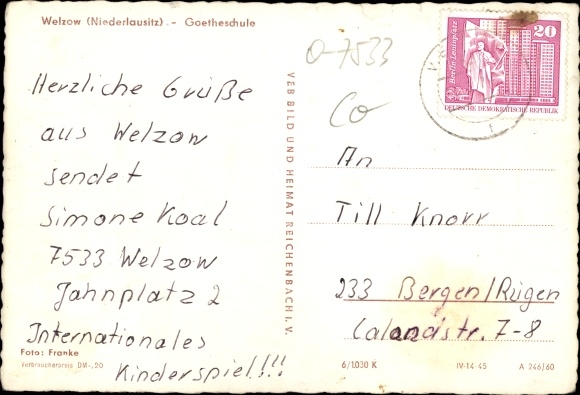 Welzow (Niederlausitz) - Goetheschule
Herzliche Grüße
aus Welzow
sendet
Simone Koal
7533 Welzow
Jahnplatz 2
Internationales
Kinderspiel!!!
Foto: Franke
Verbraucherpreis DM -,20
VEB BILD UND HEIMAT REICHENBACH I. V.
O-7533
Co
Berlin-Leninplatz
20
DEUTSCHE DEMOKRATISCHE REPUBLIK
An
Till Knorr
233 Bergen/Rügen
Calandstr. 7-8
6/1030 K
IV-14-45
A 246/60